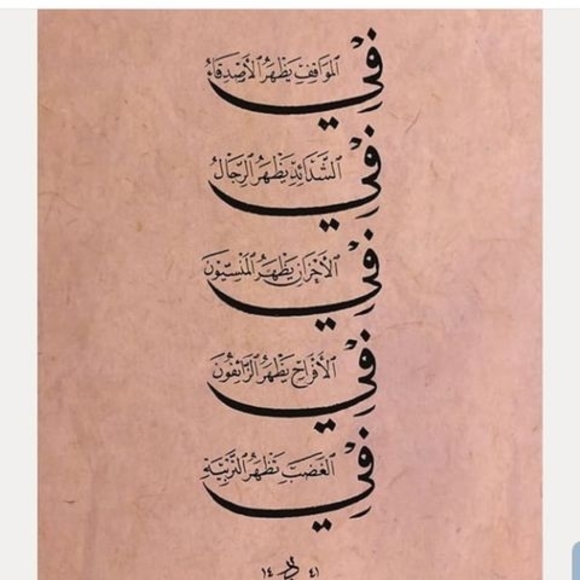 في المَوَاقِفِ يَظْهَرُ الأَصْدِقَاءُ
في الشَّدَائِدِ يَظْهَرُ الرِّجَالُ
في الأَحْزَانِ يَظْهَرُ المَنْسِيُّونَ
في الأَفْرَاحِ يَظْهَرُ الزَّائِفُونَ
في الغَضَبِ تَظْهَرُ التَّرْبِيَةُ